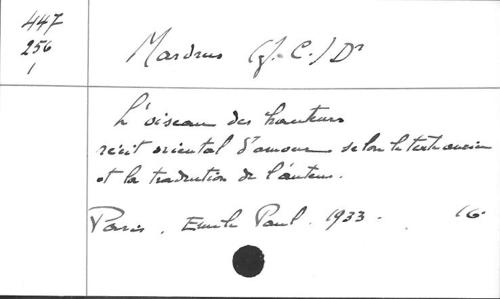 447
256
1
Mardrus (J.-C.) Dr
L'oiseau des hauteurs
récit oriental d'amour selon le texte ancien
et la tradition de l'auteur.
Paris. Emile Paul. 1933. 16.